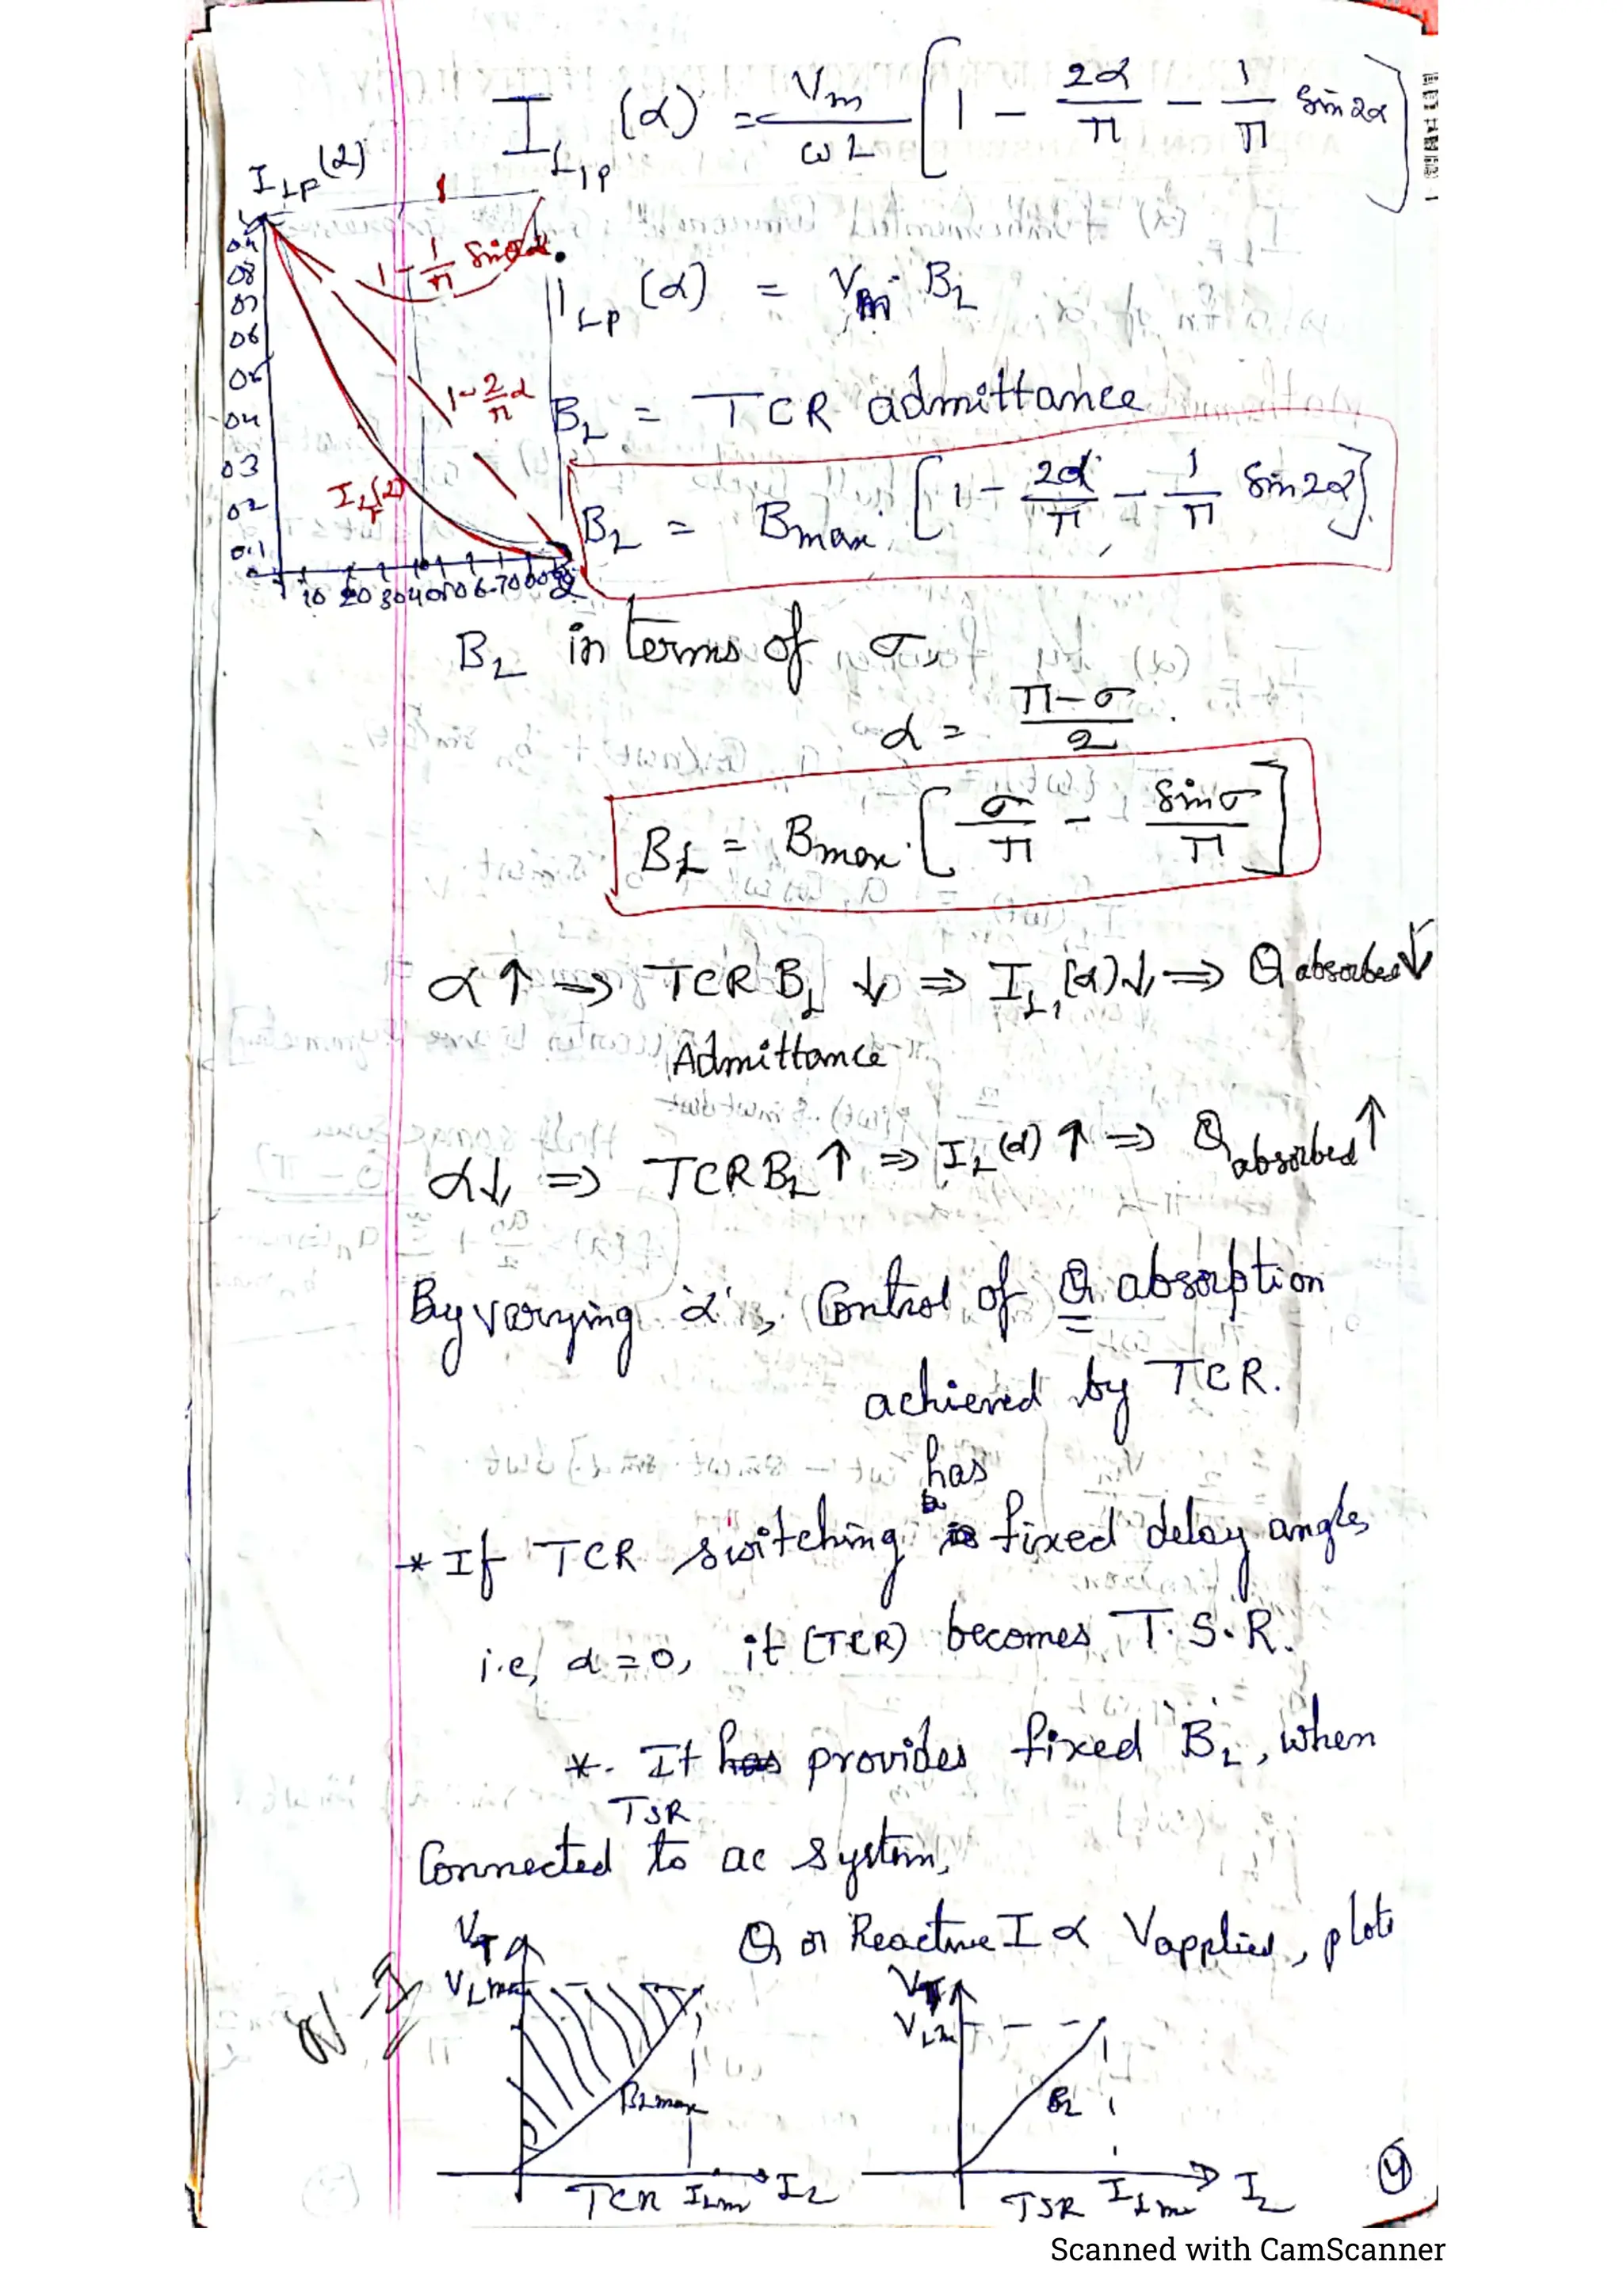 I_L1P (α) = Vm/ωL [1 - 2α/π - 1/π sin2α]
I_LP (α)
1
1 - 1/π sin2α
1 - 2/π α
I_LF(α)
08
07
06
04
03
02
0.1
0
10 20 30 40 50 60 70
I_LP (α) = Vm · B_L
B_L = TCR admittance
B_L = Bmax [1 - 2α/π - 1/π sin2α]
B_L in terms of σ
α = π-σ/2
B_L = Bmax · [σ/π - sinσ/π]
α↑ ⇒ TCR B_L ↓ ⇒ I_L1 (α)↓ ⇒ Q absorbes↓
Admittance
α↓ ⇒ TCR B_L ↑ ⇒ I_L(α) ↑ ⇒ Q absorbed ↑
By varying 'α', Control of Q absorption
achieved by TCR.
has
* If TCR switching fixed delay angle,
i.e, α = 0, it (TCR) becomes T.S.R.
*. It provides fixed B_L, when
TSR
Connected to ac system,
Q or Reactive I α Vapplied, plots
V_T
V_Lmax
B_Lmax
TCR I_Lm I_L
V_T
V_Lm
B_L
TSR I_Lm I_L
4
Scanned with CamScanner